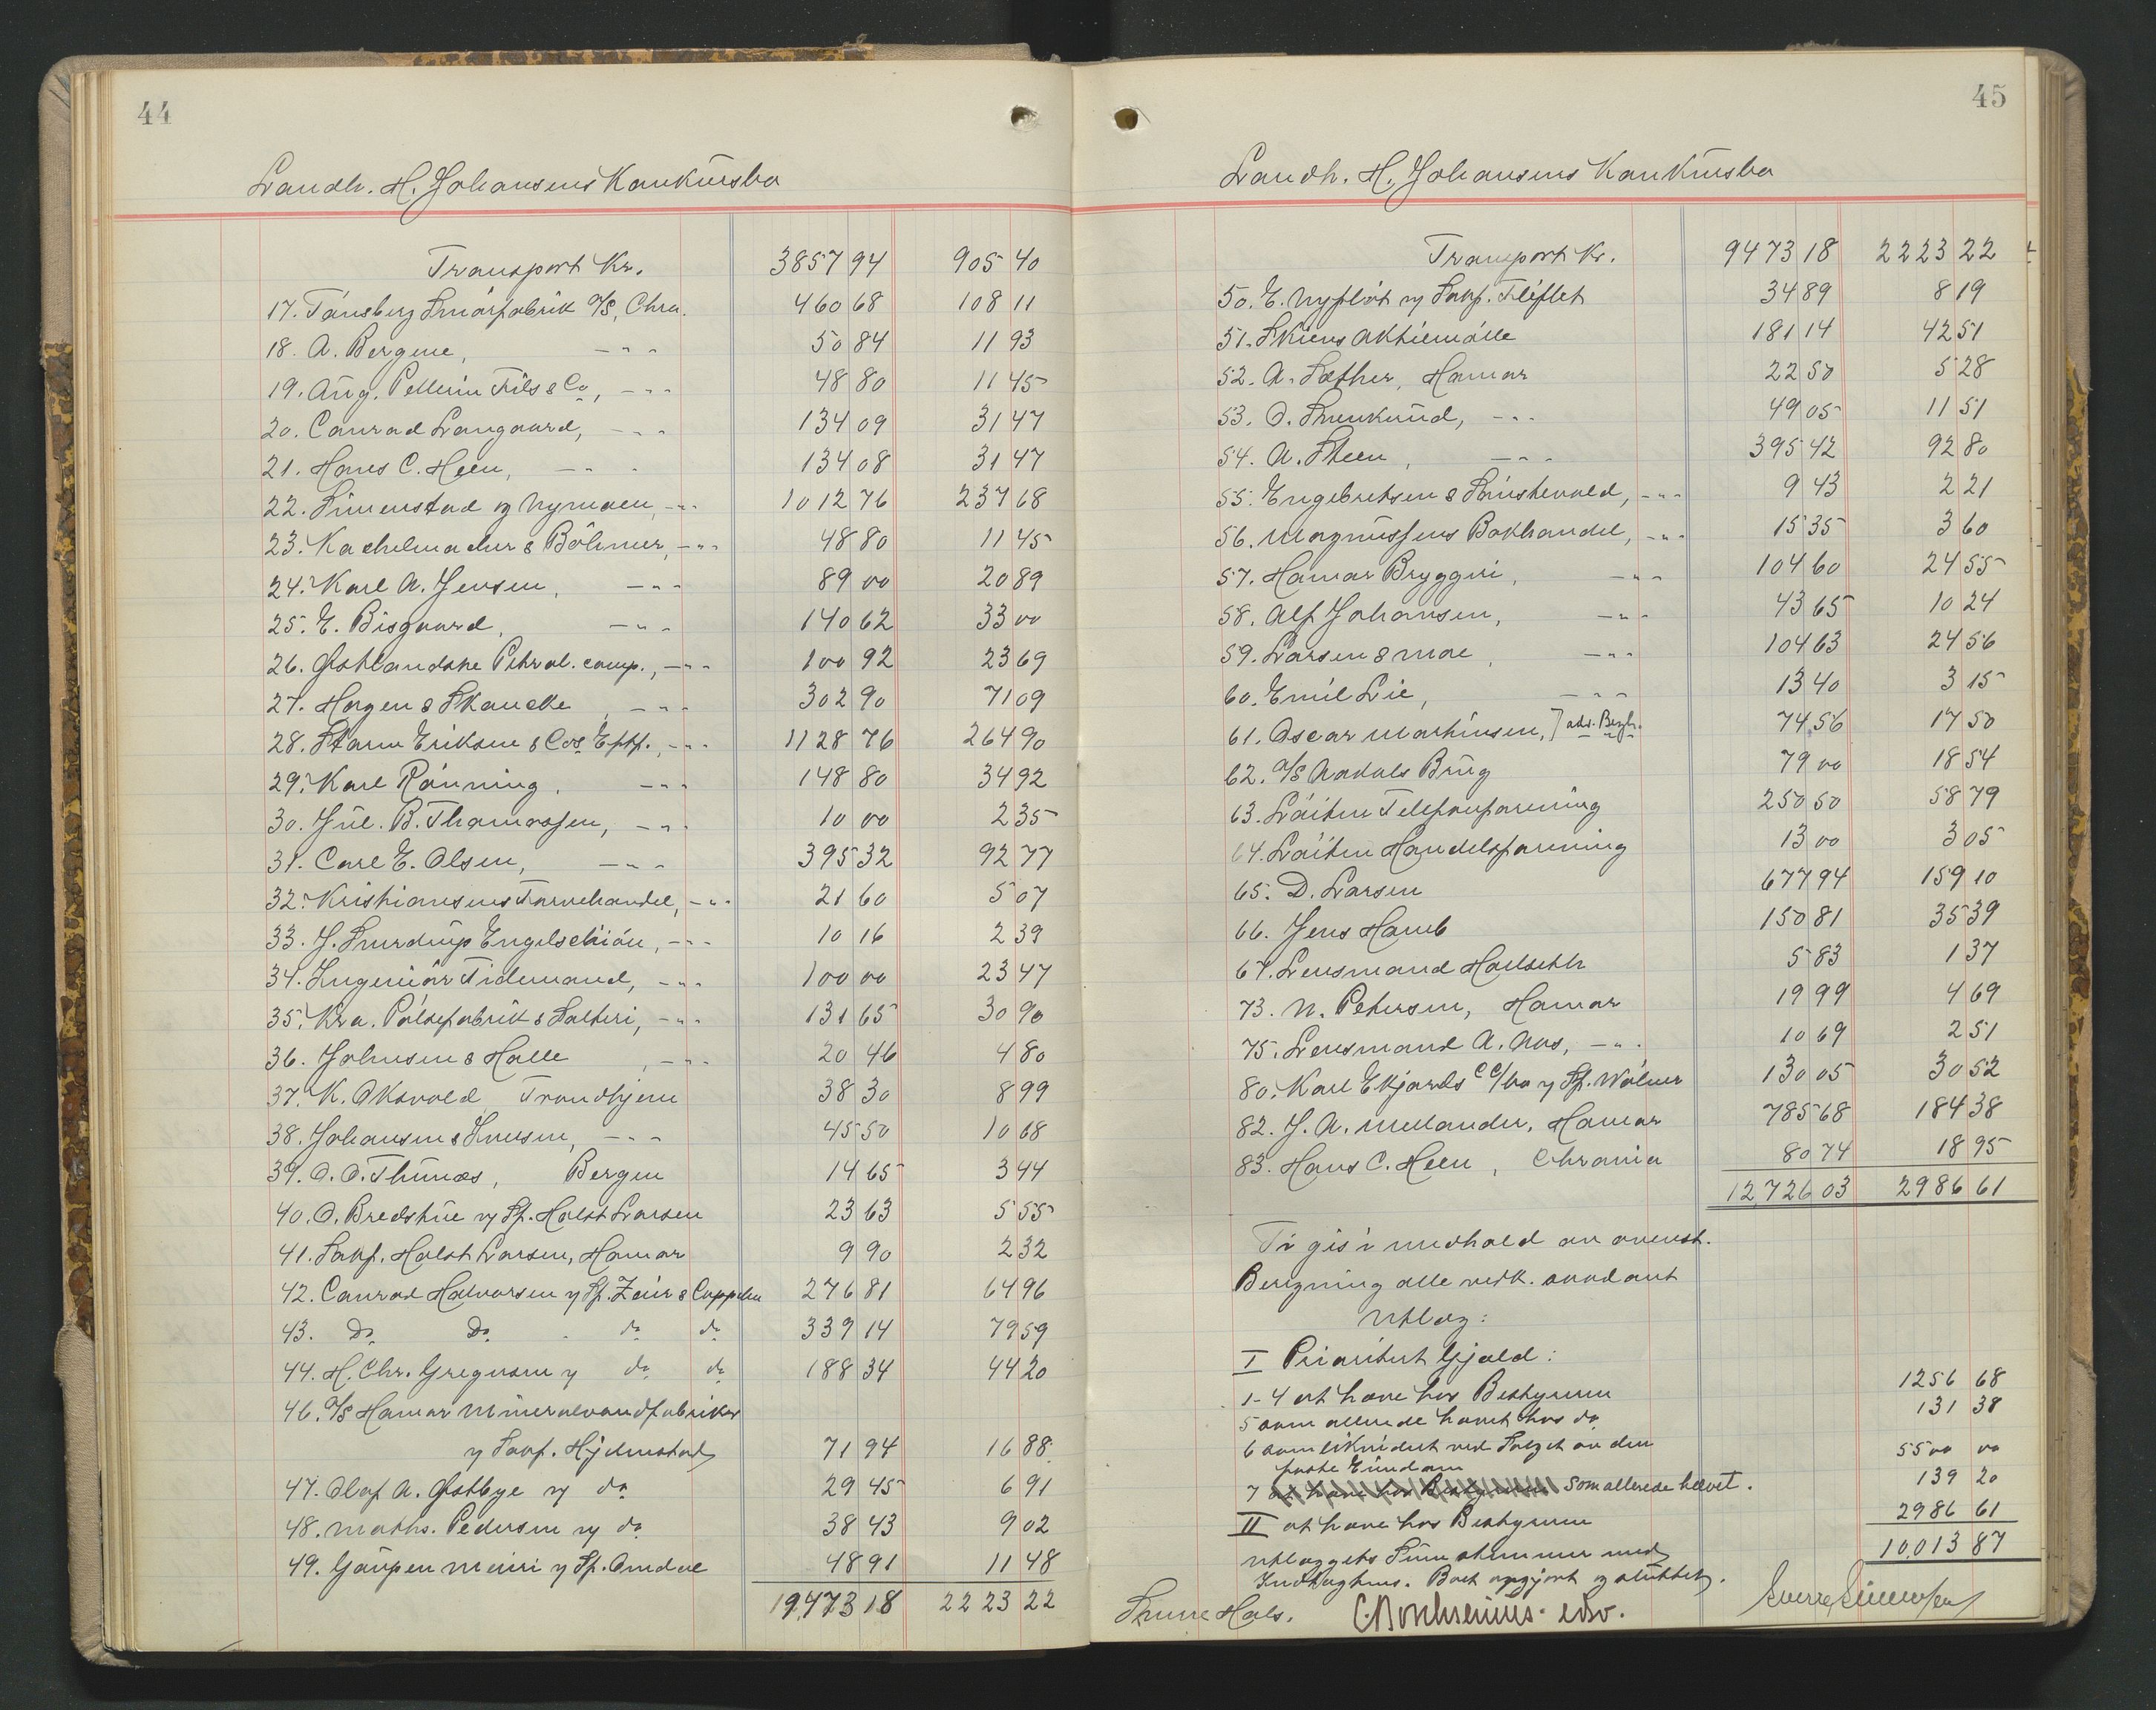 44
Landh. H. Johansens Konkursbo
Transport Kr. 3857 94 905 40
17. Tönsberg Smörfabrik A/S, Chra. 460 68 108 11
18. A. Bergene, -"- 50 84 11 93
19. Aug. Pellerin Fils & Co, -"- 48 80 11 45
20. Conrad Langaard, -"- 134 09 31 47
21. Hans C. Heen, -"- 134 08 31 47
22. Simenstad og Nymoen, -"- 1012 76 237 68
23. Kachelmacher & Böhmer, -"- 48 80 11 45
24. Karl A. Jensen, -"- 89 00 20 89
25. E. Bisgaard, -"- 140 62 33 00
26. Østlandske Petrol. comp., -"- 100 92 23 69
27. Hagen & Skancke, -"- 302 90 71 09
28. Storm Eriksen & Cos. Eftf., -"- 1128 76 264 90
29. Karl Rönning, -"- 148 80 34 92
30. Jul. B. Thomassen, -"- 10 00 2 35
31. Carl E. Olsen, -"- 395 32 92 77
32. Kristiansens Farvehandel, -"- 21 60 5 07
33. J. Smerdrup Engelschiön, -"- 10 16 2 39
34. Ingeniör Tidemand, -"- 100 00 23 47
35. Kra. Pölsefabrik & Salteri, -"- 131 65 30 90
36. Johnsen & Halle, -"- 20 46 4 80
37. K. Oksvold Trondhjem 38 30 8 99
38. Johansen & Knudsen, -"- 45 50 10 68
39. O. O. Thunæs, Bergen 14 65 3 44
40. O. Bredstue v/ Sf. Holst Larsen 23 63 5 55
41. Sakf. Holst Larsen, Hamar 9 90 2 32
42. Conrad Halvorsen v/ Sf. Zeier & Cappelen 276 81 64 96
43. Do Do do do 339 14 79 59
44. H. Chr. Gregersen v/ do do 188 34 44 20
46. A/S Hamar Mineralvandfabriker
v/ Sakf. Hjelmstad 71 94 16 88
47. Olaf A. Østbye v/ do 29 45 6 91
48. Maths. Pedersen v/ do 38 43 9 02
49. Gaupen Meieri v/ Sf. Omdal 48 91 11 48
19473 18 2223 22
45
Landh. H. Johansens Konkursbo
Transport Kr. 9473 18 2223 22
50. E. Nyflöt v/ Sakf. Fliflet 34 89 8 19
51. Skiens Aktiemölle 181 14 42 51
52. A. Sæther, Hamar 22 50 5 28
53. O. Smenkrud, -"- 49 05 11 51
54. A. Steen, -"- 395 42 92 80
55. Engebretsen & Saustevold, -"- 9 43 2 21
56. Magnussens Bokhandel, -"- 15 35 3 60
57. Hamar Bryggeri, -"- 104 60 24 55
58. Alf Johansen, -"- 43 65 10 24
59. Larsen & Moe, -"- 104 63 24 56
60. Emil Lie, -"- 13 40 3 15
61. Oscar Martinsen, 74 56 17 50
62. A/S Aadals Brug 79 00 18 54
63. Löiten Telefonforening 250 50 58 79
64. Löiten Handelsforening 13 00 3 05
65. D. Larsen 677 94 159 10
66. Jens Hamb 150 81 35 39
67. Lensmand Holseth 5 83 1 37
73. N. Petersen, Hamar 19 99 4 69
75. Lensmand A. Aas, -"- 10 69 2 51
80. Karl Ekjords C C/bo v/ Sf. Wölner 130 05 30 52
82. J. A. Mellander, Hamar 785 68 184 38
83. Hans C. Heen, Chrania 80 74 18 95
12,726 03 2986 61
Ti gis i medhold av ovenst.
Beregning alle vedk. saadant
Utlæg:
I Prioritert Gjæld:
1-4 at hæve hos Bestyreren 1256 68
5 som allerede hævet hos do 131 38
6 som likvidert ved Salget av den
faste Eiendom 5500 00
7 som allerede hævet. 139 20
II at hæve hos Bestyreren 2986 61
10,013 87
Utlæggets Sum stemmer med
Indtægtens. Boet opgjort og sluttet.